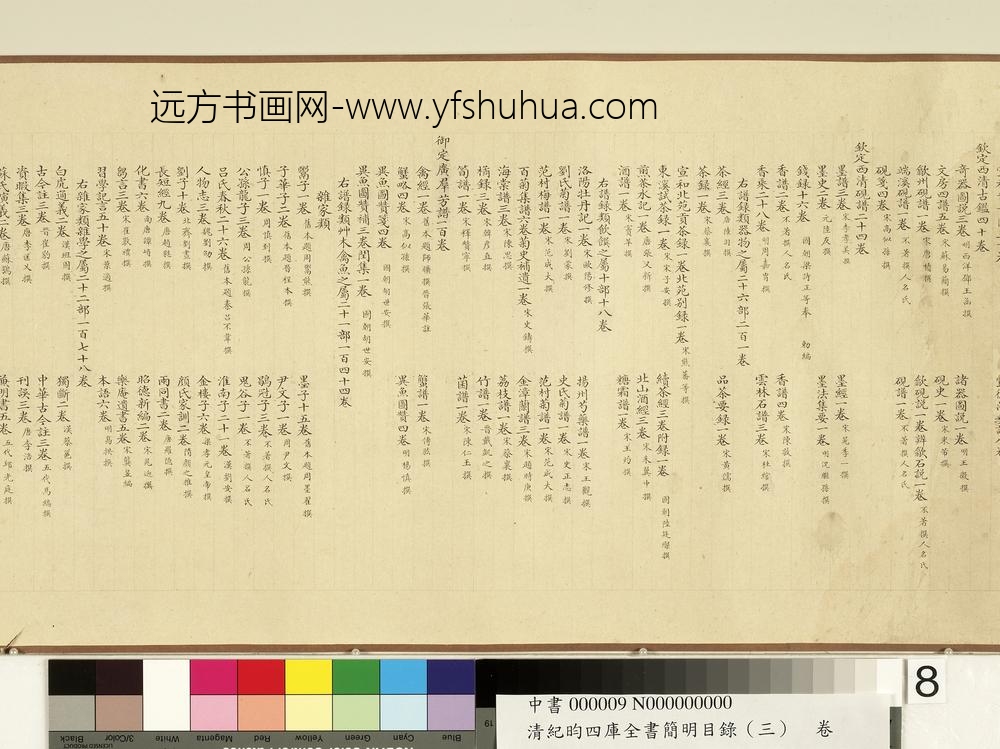 远方书画网-www.yfshuhua.com
欽定西清古鑑四十卷
奇器圖說三卷 明西洋鄧玉函撰 諸器圖說一卷 明王徵撰
文房四譜五卷 宋蘇易簡撰 硯史一卷 宋米芾撰
歙州硯譜一卷 宋唐積撰 歙硯說一卷辨歙石說一卷 不著撰人名氏
端溪硯譜一卷 不著撰人名氏 硯譜一卷 不著撰人名氏
硯箋四卷 宋高似孫撰
欽定西清硯譜二十四卷
墨譜三卷 宋李孝美撰 墨經一卷 宋晁季一撰
墨史二卷 元陸友撰 墨法集要一卷 明沈繼孫撰
錢錄十六卷 國朝梁詩正等奉 勅編
香譜二卷 不著撰人名氏 香譜四卷 宋陳敬撰
香乘二十八卷 明周嘉胄撰 雲林石譜三卷 宋杜綰撰
右譜錄類器物之屬二十六部二百一卷
茶經三卷 唐陸羽撰
茶錄二卷 宋蔡襄撰 品茶要錄一卷 宋黃儒撰
宣和北苑貢茶錄一卷北苑別錄一卷 宋熊蕃等撰
東溪試茶錄一卷 宋宋子安撰 續茶經三卷附錄一卷 國朝陸廷燦撰
煎茶水記一卷 唐張又新撰 北山酒經三卷 宋朱翼中撰
酒譜一卷 宋竇苹撰 糖霜譜一卷 宋王灼撰
右譜錄類飲饌之屬十部十八卷
洛陽牡丹記一卷 宋歐陽修撰 揚州芍藥譜一卷 宋王觀撰
劉氏菊譜一卷 宋劉蒙撰 史氏菊譜一卷 宋史正志撰
范村梅譜一卷 宋范成大撰 范村菊譜一卷 宋范成大撰
百菊集譜六卷菊史補遺一卷 宋史鑄撰 金漳蘭譜三卷 宋趙時庚撰
海棠譜三卷 宋陳思撰 荔枝譜一卷 宋蔡襄撰
橘錄三卷 宋韓彥直撰 竹譜一卷 晉戴凱之撰
筍譜一卷 宋釋贊寧撰 菌譜一卷 宋陳仁玉撰
御定廣羣芳譜一百卷
禽經一卷 舊本題師曠撰晉張華註 蟹譜一卷 宋傅肱撰
蟹略四卷 宋高似孫撰 異魚圖贊四卷 明楊慎撰
異魚圖贊箋四卷 國朝胡世安撰
異魚圖贊補三卷閏集一卷 國朝胡世安撰
右譜錄類艸木禽魚之屬二十一部一百四十四卷
雜家類
鬻子一卷 舊本題周鬻熊撰 墨子十五卷 舊本題周墨翟撰
子華子二卷 舊本題晉程本撰 尹文子一卷 周尹文撰
慎子一卷 周慎到撰 鶡冠子三卷 不著撰人名氏
公孫龍子三卷 周公孫龍撰 鬼谷子一卷 不著撰人名氏
呂氏春秋二十六卷 舊本題秦呂不韋撰 淮南子二十一卷 漢劉安撰
人物志三卷 魏劉劭撰 金樓子六卷 梁孝元皇帝撰
劉子十卷 北齊劉晝撰 顏氏家訓二卷 隋顏之推撰
長短經九卷 唐趙蕤撰 兩同書二卷 唐羅隱撰
化書六卷 南唐譚峭撰 昭德新編二卷 宋晁迥撰
芻言三卷 宋崔敦禮撰 樂庵遺書五卷 宋龔昱編
習學記言五十卷 宋葉適撰 本語六卷 明高拱撰
右雜家類雜學之屬二十二部一百七十八卷
白虎通義二卷 漢班固撰 獨斷二卷 漢蔡邕撰
古今註三卷 晉崔豹撰 中華古今註三卷 五代馬縞撰
資暇集三卷 唐李匡乂撰 刊誤二卷 唐李涪撰
蘇氏演義二卷 唐蘇鶚撰 兼明書五卷 五代邱光庭撰
Black 3/Color White Magenta Red Yellow Green Cyan Blue
LICENSED PRODUCT
19
8
中書 000009 N000000000
清紀昀四庫全書簡明目錄(三) 卷